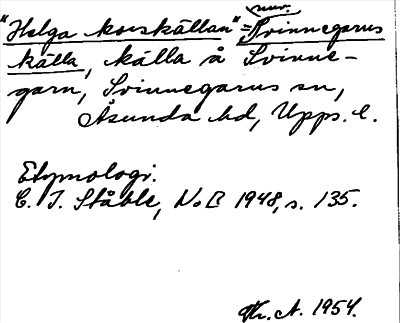 nuv.
"Helga korskällan" = Svinnegarns
källa, källa å Svinne-
garn, Svinnegarns sn,
Åsunda hd, Upps. l.
Etymologi.
C. I. Ståhle, NoB 1948, s. 135.
1954.